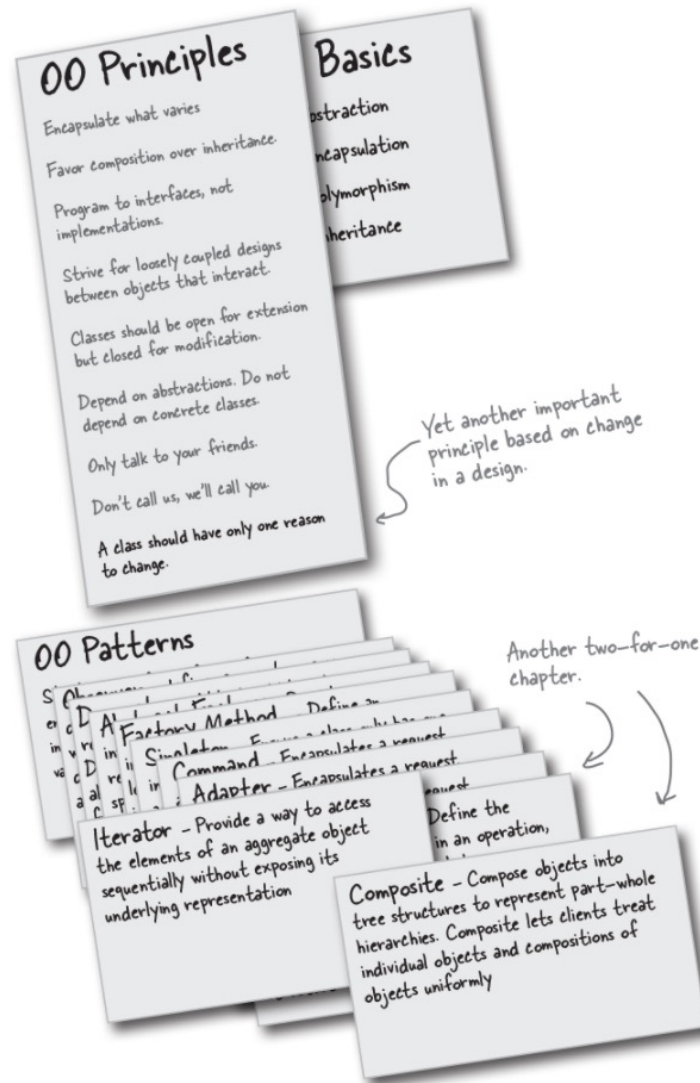 OO Principles
Encapsulate what varies
Favor composition over inheritance.
Program to interfaces, not
implementations.
Strive for loosely coupled designs
between objects that interact.
Classes should be open for extension
but closed for modification.
Depend on abstractions. Do not
depend on concrete classes.
Only talk to your friends.
Don't call us, we'll call you.
A class should have only one reason
to change.
Basics
bstraction
ncapsulation
olymorphism
heritance
Yet another important
principle based on change
in a design.
OO Patterns
Factory Method - Define an
Singleton - Ensure a class only has one
Command - Encapsulates a request
Adapter - Encapsulates a request
quest
Define the
in an operation,
Iterator - Provide a way to access
the elements of an aggregate object
sequentially without exposing its
underlying representation
Another two-for-one
chapter.
Composite - Compose objects into
tree structures to represent part-whole
hierarchies. Composite lets clients treat
individual objects and compositions of
objects uniformly